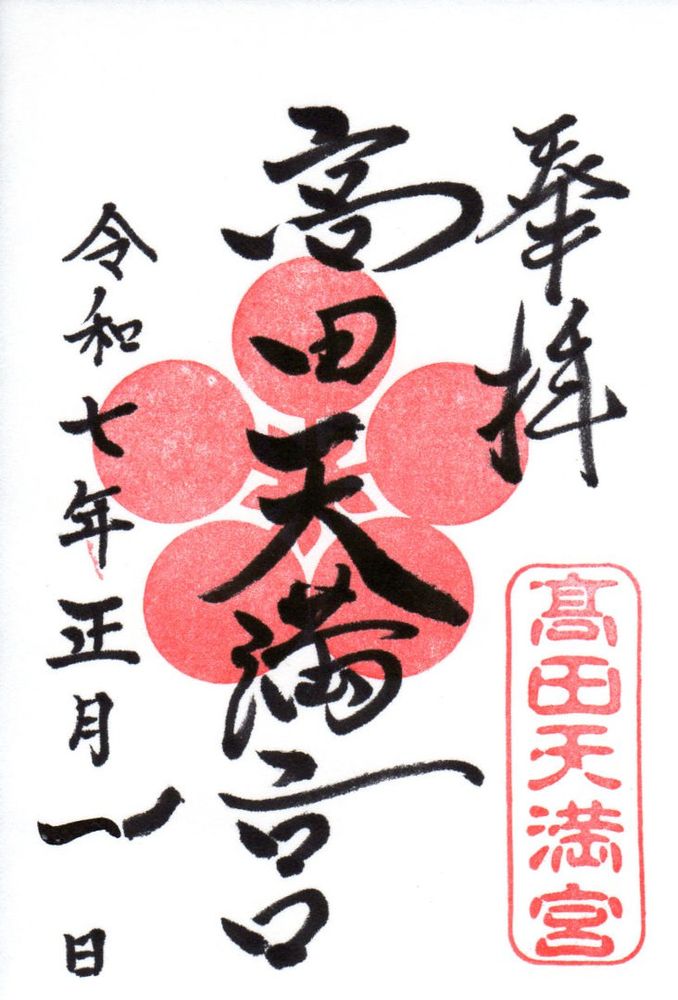 奉拝
高田天満宮
令和七年正月 日
髙田天満宮